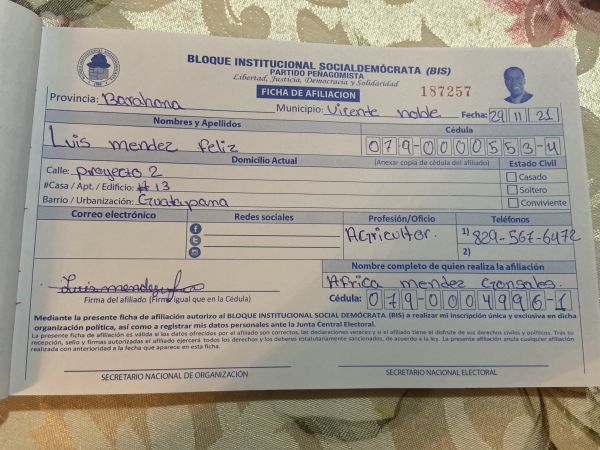 BLOQUE INSTITUCIONAL SOCIALDEMÓCRATA (BIS)
PARTIDO PEÑAGOMISTA
Libertad, Justicia, Democracia y Solidaridad
FICHA DE AFILIACION
187257
Provincia: Barahona Municipio: Vicente noble Fecha: 29 11 21
Nombres y Apellidos Cédula
Luis mendez feliz 079-0000553-4
Domicilio Actual (Anexar copia de cédula del afiliado) Estado Civil
Calle: proyecto 2 Casado
#Casa / Apt. / Edificio: # 13 Soltero
Barrio / Urbanización: Guatapana Conviviente
Correo electrónico Redes sociales Profesión/Oficio Teléfonos
Agricultor. 1) 829-567-6472
2)
Nombre completo de quien realiza la afiliación
Luis mendez Africa mendez Gonsales.
Firma del afiliado (Firma igual que en la Cédula) Cédula: 079-0004996-1
Mediante la presente ficha de afiliación autorizo al BLOQUE INSTITUCIONAL SOCIAL DEMÓCRATA (BIS) a realizar mi inscripción única y exclusiva en dicha
organización política, así como a registrar mis datos personales ante la Junta Central Electoral.
La presente ficha de afiliación es válida si los datos ofrecidos por el afiliado son correctos, las declaraciones veraces y si el afiliado tiene el disfrute de sus derechos civiles y políticos. Tras su
recepción, sello y firmas autorizadas el afiliado ejercerá todos los derechos y los deberes estatutariamente sancionados, de acuerdo a la ley. La presente afiliación anula cualquier afiliación
realizada con anterioridad a la fecha que aparece en esta ficha.
SECRETARIO NACIONAL DE ORGANIZACIÓN SECRETARIO NACIONAL ELECTORAL